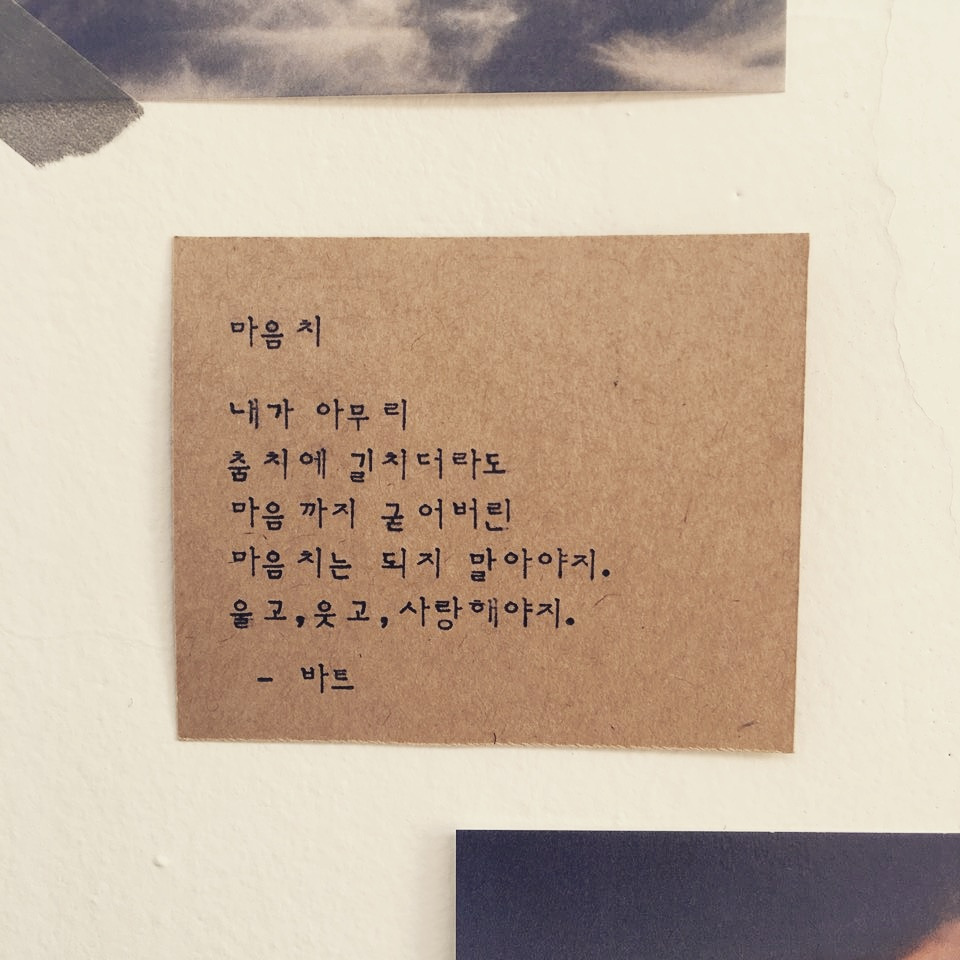 마음치
내가 아무리
춤치에 길치더라도
마음까지 굳어버린
마음치는 되지 말아야지.
울고,웃고,사랑해야지.
- 바트